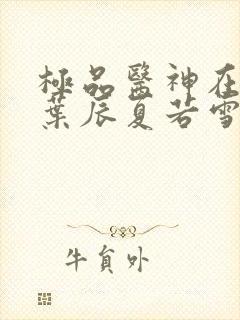 極品醫神在
葉辰夏若雪
牛負外